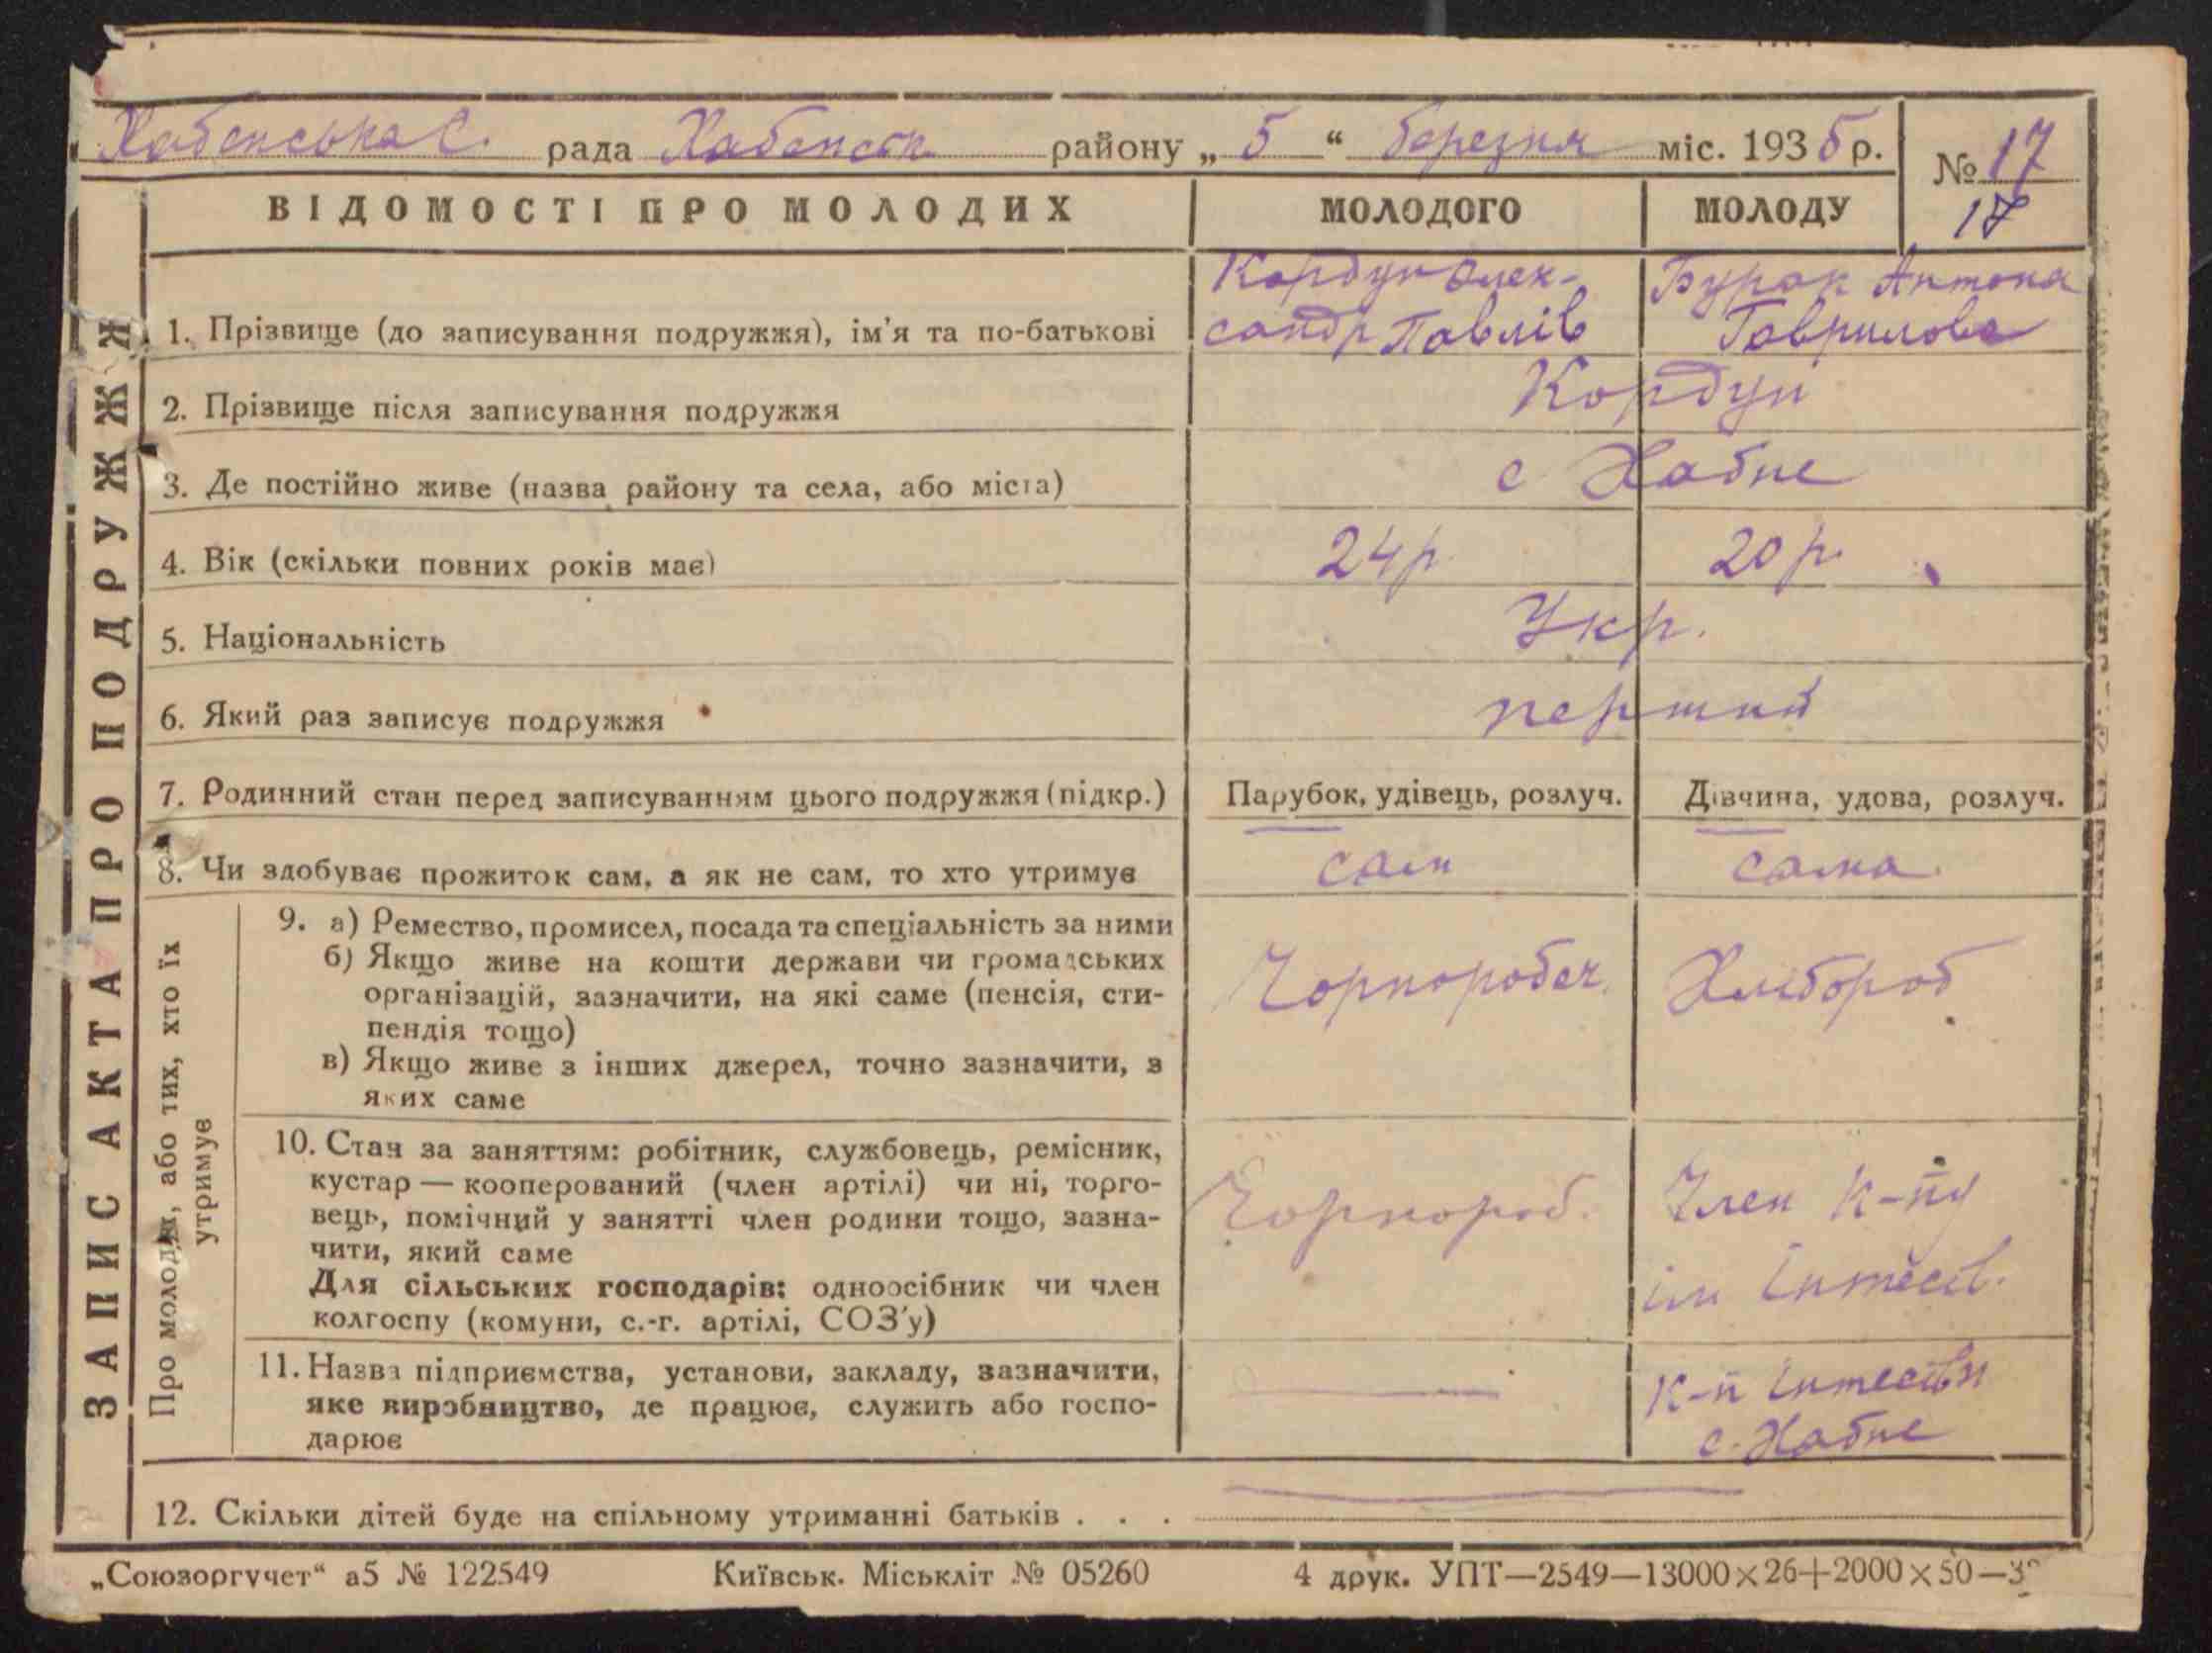 Хабенська С. рада Хабенськ району „ 5 “ березня міс. 1935 р. № 17
17
ВІДОМОСТІ ПРО МОЛОДИХ МОЛОДОГО МОЛОДУ
ЗАПИС АКТА ПРО ПОДРУЖЖЯ
1. Прізвище (до записування подружжя), ім’я та по-батькові Кордун Олек-сандр Павлів Бурак Антона Гаврилова
2. Прізвище після записування подружжя Кордун
3. Де постійно живе (назва району та села, або міста) с Хабне
4. Вік (скільки повних років має) 24 р. 20 р.
5. Національність Укр.
6. Який раз записує подружжя перший
7. Родинний стан перед записуванням цього подружжя (підкр.) Парубок, удівець, розлуч. Дівчина, удова, розлуч.
8. Чи здобуває прожиток сам, а як не сам, то хто утримує сам сама
Про молодих, або тих, хто їх
утримує
9. а) Ремество, промисел, посада та спеціальність за ними
б) Якщо живе на кошти держави чи громадських
організацій, зазначити, на які саме (пенсія, сти-
пендія тощо)
в) Якщо живе з інших джерел, точно зазначити, з
яких саме
Чорноробоч. Хлібороб
10. Стан за заняттям: робітник, службовець, ремісник,
кустар — кооперований (член артілі) чи ні, торго-
вець, помічний у занятті член родини тощо, зазна-
чити, який саме
Для сільських господарів: одноосібник чи член
колгоспу (комуни, с.-г. артілі, СОЗ’у)
Чорнороб. Член к-пу
ім
11. Назва підприємства, установи, закладу, зазначити,
яке виробництво, де працює, служить або госпо-
дарює
к-п
с. Хабне
12. Скільки дітей буде на спільному утриманні батьків . . .
„Союзоргучет“ а5 № 122549 Київськ. Міськліт № 05260 4 друк. УПТ—2549—13000×26+2000×50—3